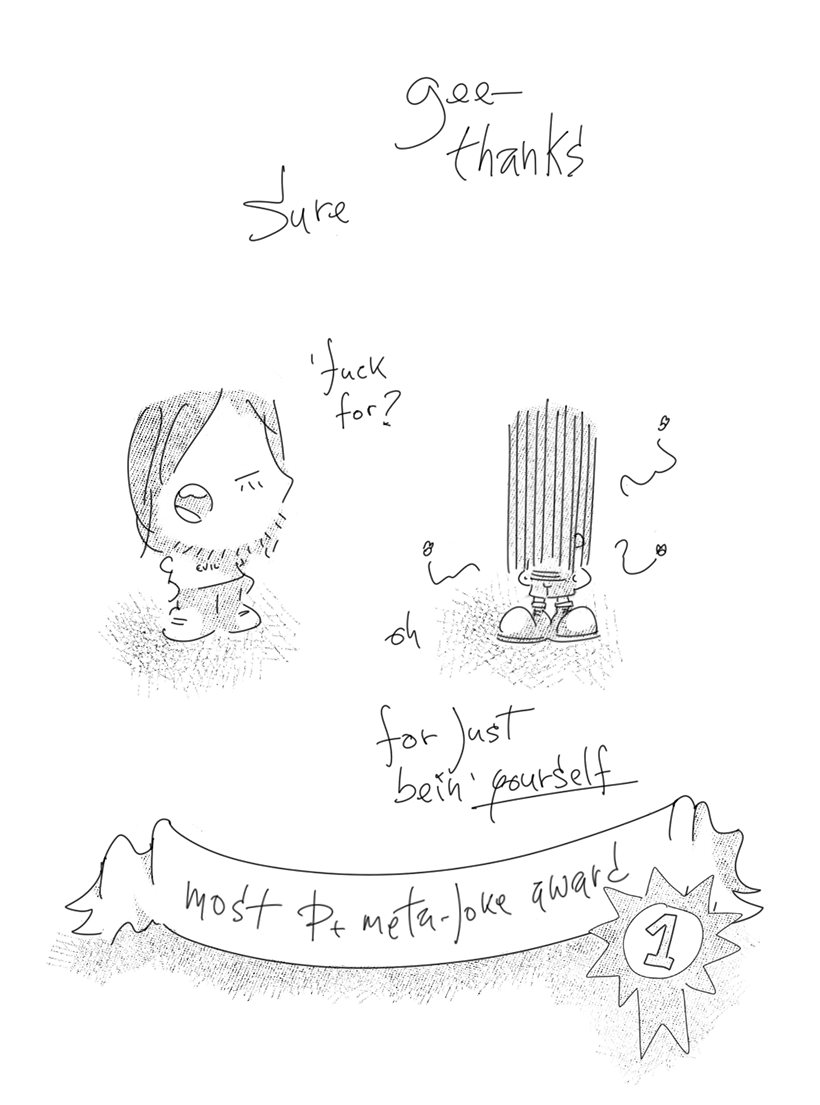 gee—
thanks
Sure
'fuck
for?
EVIL
oh
for just
bein' yourself
most Pt meta-joke award
1